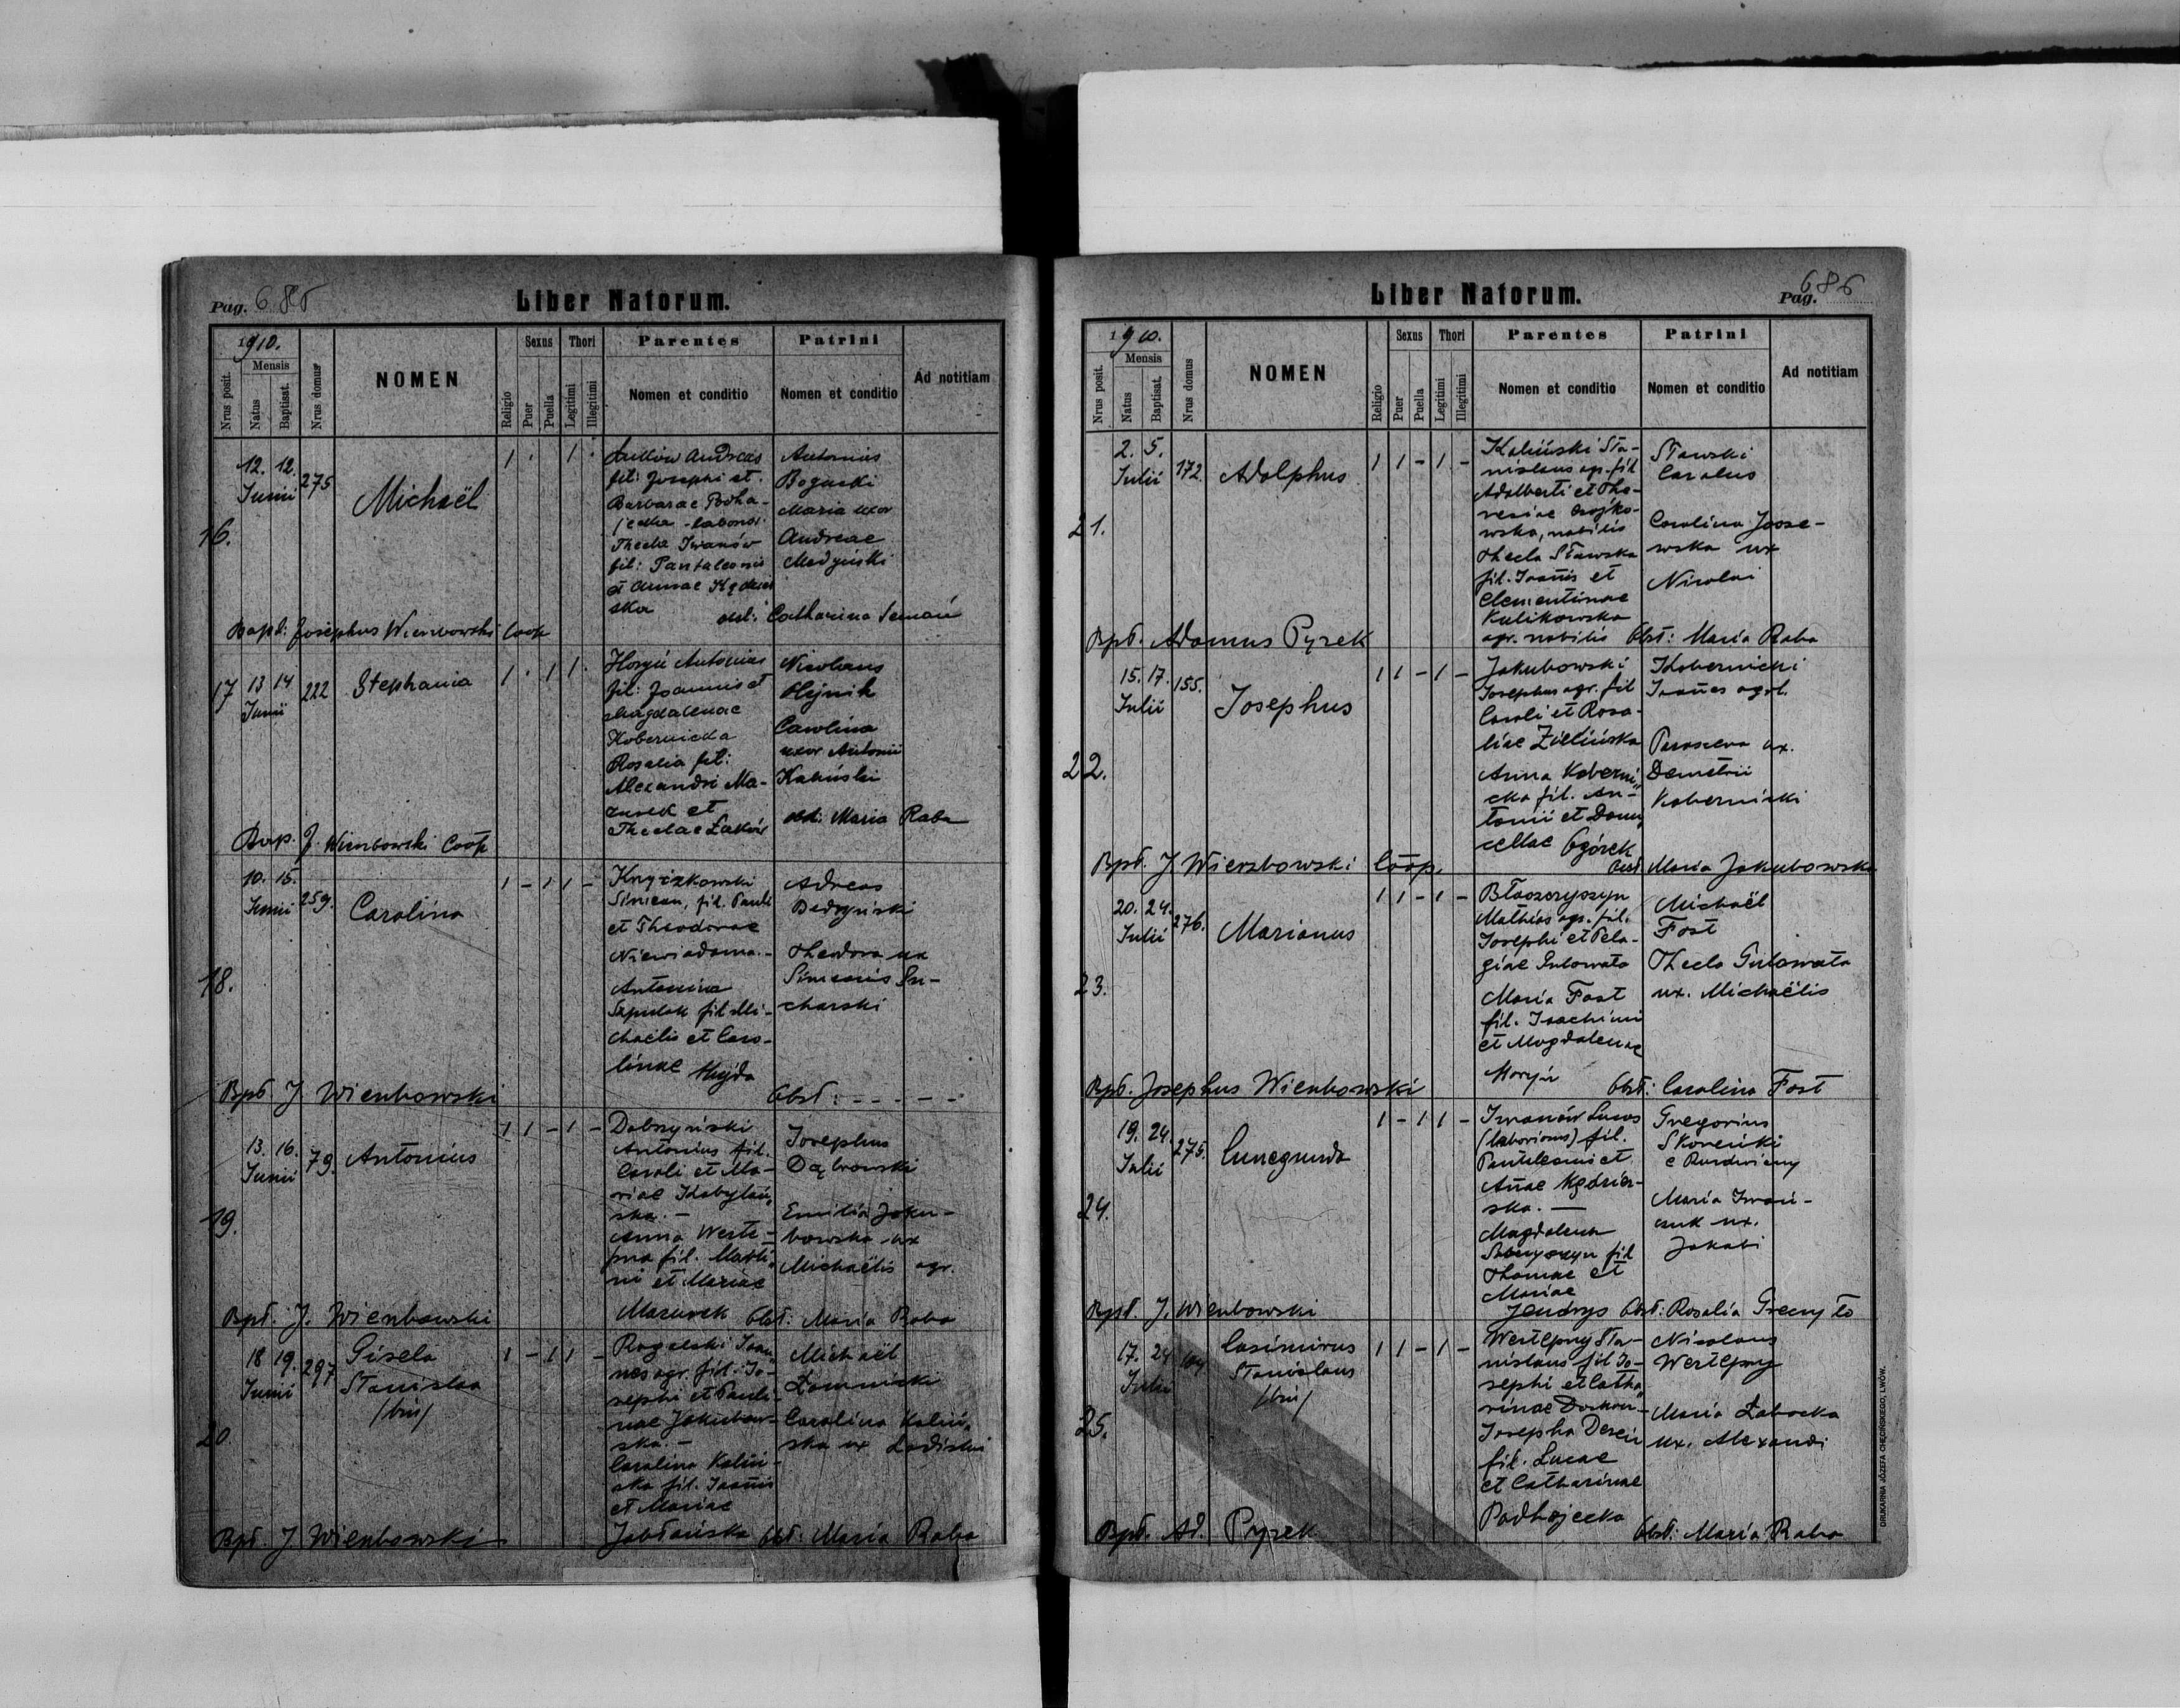 Pag. 685
Liber Natorum.
1910.
Mensis
Nrus posit.
Natus
Baptisat.
Nrus domus
NOMEN
Religio
Sexus
Puer
Puella
Thori
Legitimi
Illegitimi
Parentes
Nomen et conditio
Patrini
Nomen et conditio
Ad notitiam
16.
12. 12.
Junii
275
Michaël
1 . 1 .
Andreas
fil: Josephi et
Barbarae Podha-
jecka - labor.
Thecla Iwanów
fil: Pantaleonis
et Annae
ska
Antonius
Boguski
Maria uxor
Andreae
obst: Catharina Seman
Bapt: Josephus Wierzbowski Coop
17
13 14
Junii
222
Stephania
1 . 1 1 .
Horyń Antonius
fil: Joannis et
Magdalenae
Kobernicka
Rosalia fil:
Alexandri Ma-
zurek et
Theclae Luków
Nicolaus
Olejnik
Carolina
uxor Antonii
Kaliński
obst: Maria Raba
Bap. J. Wierzbowski Coop
18.
10. 15.
Junii
259.
Carolina
1 - 1 1 -
Kryczkowski
Simeon, fil. Pauli
et Theodorae
Niewiadoma. -
Antonina
fil. Mi-
chaëlis et Caro-
linae Hujda
Adreas
Bedryński
Theodora ux
Simeonis Su-
charski
Bpt. J. Wierzbowski
Obst: - - - - -
19.
13. 16.
Junii
79.
Antonius
1 1 - 1 -
Dobrzyński
Antonius fil.
Caroli et Ma-
riae Kobylań-
ska. -
Anna Weste-
pna fil. Marti-
ni et Mariae
Mazurek
Josephus
Dąbrowski
Emilia Jaku-
bowska ux
Michaëlis agr.
Bpt. J. Wierzbowski
Obst: Maria Raba
20.
18 19.
Junii
297
Gisela
Stanislaa
/bin/
1 - 1 1 -
Rogalski Joan-
nes agr. fil. Jo-
sephi et Pauli-
nae Jakubow-
ska. -
Carolina Kaliń-
ska fil. Joañis
et Mariae
Jabłońska
Michaël
Łomnicki
Carolina Kaliń-
ska ux Ladislai
Bpt. J. Wierzbowski
Obst: Maria Raba
Liber Natorum.
Pag. 686
1910.
Mensis
Nrus posit.
Natus
Baptisat.
Nrus domus
NOMEN
Religio
Sexus
Puer
Puella
Thori
Legitimi
Illegitimi
Parentes
Nomen et conditio
Patrini
Nomen et conditio
Ad notitiam
21.
2. 5.
Julii
172.
Adolphus
1 1 - 1 -
Kaliński Sta-
nislaus agr. fil
Adalberti et The-
resiae Czajko-
wska, nobilis
Thecla Sławska
fil. Joañis et
Clementinae
Kulikowska
agr. nobilis
Sławski
Carolus
Carolina
wska ux
Nicolai
Bpt. Adamus Pyrek
Obst: Maria Raba
22.
15. 17.
Julii
155.
Josephus
1 1 - 1 -
Jakubowski
Josephus agr. fil
Caroli et Rosa-
liae Zielińska
Anna Koberni-
cka fil. An-
tonii et Domi-
cellae Ogórek
Kobernicki
Joañes agrl.
Parasceva ux.
Demetrii
Kobernicki
Bpt. J. Wierzbowski Coop.
Obst. Maria Jakubowska
23.
20. 24.
Julii
276.
Marianus
1 1 - 1 -
Błaszczyszyn
Mathias agr. fil.
Josephi et Pela-
giae Gulowata
Maria Fost
fil. Joachimi
et Magdalenae
Horyń
Michaël
Fost
Thecla Gulowata
ux. Michaëlis
Bpt. Josephus Wierzbowski
Obst: Carolina Fost
24.
19. 24.
Julii
275.
Cunegunda
1 - 1 1 -
Iwanów Lucas
(laborious) fil.
Pantaleonis et
Añae Kędzier-
ska. -
Magdalena
fil
Thomae et
Mariae
Jendrys
Gregorius
Skoreński
Maria Iwań-
czuk ux.
Jakobi
Bpt. J. Wierzbowski
Obst: Rosalia
25.
17. 24
Julii
Casimirus
Stanislaus
/bin/
1 1 - 1 -
Westepny Sta-
nislaus fil Jo-
sephi et Catha-
rinae
Josepha
fil. Lucae
et Catharinae
Podhajecka
Nicolaus
Westepny
Maria Zabocka
ux. Alexandri
Bpt. Ad. Pyrek
Obst: Maria Raba
DRUKARNIA JÓZEFA CHĘCIŃSKIEGO, LWÓW.